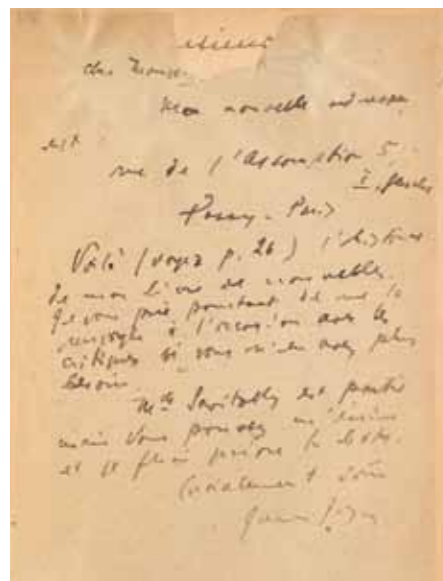 cher Monsieur
Mon nouvelle adresse
est
rue de l'Assomption 5
I, gauche
Passy - Paris
Voilà (voyez p. 26) l'histoire
de mon livre de nouvelles.
Je vous prie pourtant de me le
renvoyer à l'occasion avec les
critiques si vous n'en avez plus
besoin
est partie
mais vous pouvez m'écrire
et je
Cordialement votre
James Joyce